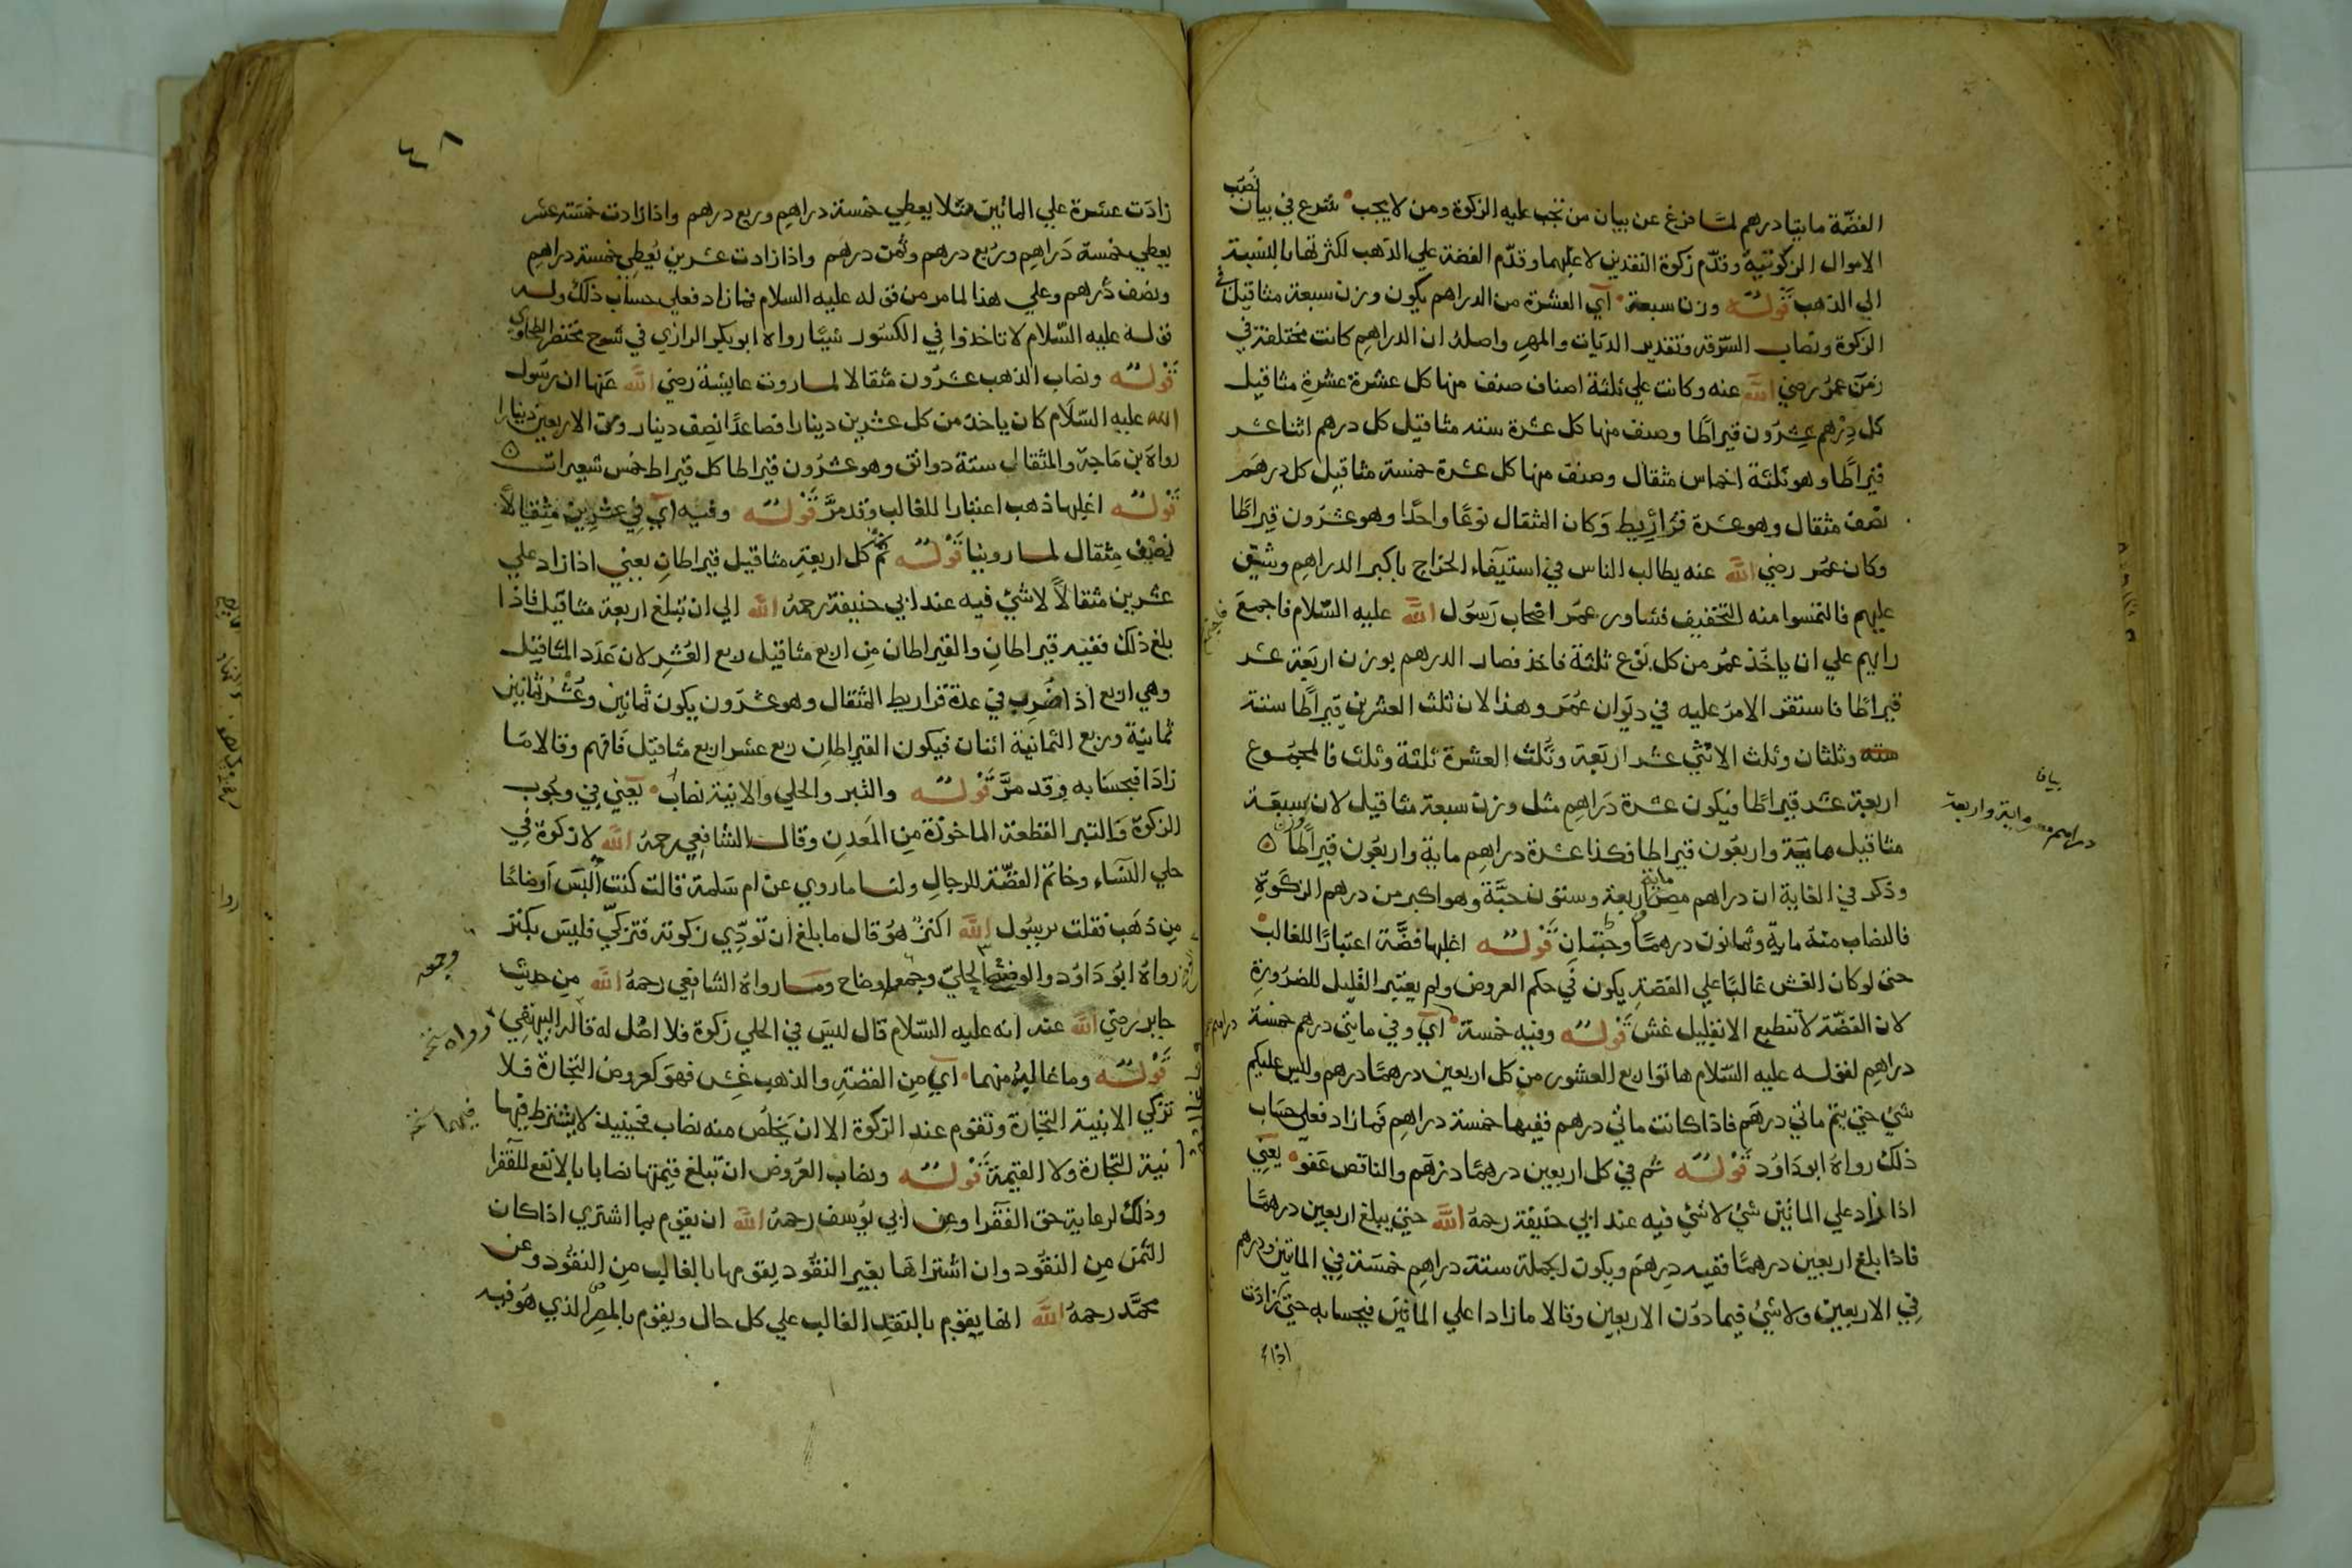 الفضة مايتا درهم لما فرغ عن بيان من تجب عليه الزكوة ومن لا يجب شرع في بيان نُصُب
الاموال الزكوتية وقدّم زكوة النقدين لاغلبها وقدّم الفضة علي الذهب لكثرتها بالنسبة
الي الذهب قوله وزن سبعة اي العشرة من الدراهم يكون وزن سبعة مثاقيل في
الزكوة ونصاب السّرقة وتقدير الديات والمهر واصله ان الدراهم كانت مختلفة في
زمن عمر رضي الله عنه وكانت علي ثلثة اصناف صنف منها كل عشرة عشرة مثاقيل
كل درهم عشرون قيراطًا وصنف منها كل عشرة ستة مثاقيل كل درهم اثنا عشر
قيراطًا وهو ثلثة اخماس مثقال وصنف منها كل عشرة خمسة مثاقيل كل درهم
نصف مثقال وهو عشرة قراريط وكان المثقال نوعًا واحدًا وهو عشرون قيراطًا
وكان عمر رضي الله عنه يطالب الناس في استيفاء الخراج باكبر الدراهم ويشق
عليهم فالتمسوا منه التخفيف فشاور عمر اصحاب رسول الله عليه السلام فاجمع
رايهم علي ان ياخذ عمر من كل نوع ثلثة فاخذ فصار الدرهم بوزن اربعة عشر
قيراطًا فاستقر الامر عليه في ديوان عمر وهذا لان ثلث العشرين قيراطًا ستة
وثلثان وثلث الاثني عشر اربعة وثلث العشرة ثلثة وثلث فالمجموع
اربعة عشر قيراطًا فيكون عشرة دراهم مثل وزن سبعة مثاقيل لان سبعة
مثاقيل ماية واربعون قيراطا فكذا عشرة دراهم ماية واربعون قيراطًا
وذكر في الغاية ان دراهم مصر اربعة وستون حبّة وهو اكبر من درهم الزكوة
فالنصاب منه ماية وثمانون درهمًا وحبتان قوله اغلبها فضّة اعتبارًا للغالب
حتي لو كان الغش غالبًا علي الفضة يكون في حكم العروض ولم يعتبر القليل للضرورة
لان الفضّة لا تنطبع الا بقليل غش قوله وفيه خمسة اي وفي مايتي درهم خمسة
دراهم لقوله عليه السّلام هاتوا ربع العشور من كل اربعين درهمًا درهم وليس عليكم
شيء حتي يتم مائتي درهم فاذا كانت مائتي درهم ففيها خمسة دراهم فما زاد فعلي حساب
ذلك رواه ابو داود قوله ثم في كل اربعين درهمًا درهم والناقص عفو يعني
اذا زاد علي المائتين شيء لا شيء فيه عند ابي حنيفة رحمه الله حتي يبلغ اربعين درهمًا
فاذا بلغ اربعين درهمًا ففيه درهم ويكون الجملة ستة دراهم خمسة في المائتين ودرهم
في الاربعين ولا شيء فيما دون الاربعين وقالا ما زادا علي المائتين فبحسابه حتي
اذا
دراهم مصر ماية واربعة
٤٨
زادت عشرة علي المائين مثلا يعطي خمسة دراهم وربع درهم واذا زادت خمسة عشر
يعطي خمسة دراهم وربع درهم وثمن درهم واذا زادت عشرين يعطي خمسة دراهم
ونصف درهم وعلي هذا لما مر من قوله عليه السلام فما زاد فعلي حساب ذلك وله
قوله عليه السّلام لا تاخذوا في الكسور شيئًا رواه ابو بكر الرازي في شرح مختصر الطحاوي
قوله ونصاب الذهب عشرون مثقالا لما روت عايشة رضي الله عنها ان رسول
الله عليه السّلام كان ياخذ من كل عشرين دينارا فصاعدًا نصف دينار ومن الاربعين دينارا
رواه بن ماجة والمثقال ستة دوانق وهو عشرون قيراطا كل قيراط خمس شعيرات
قوله اغلبها ذهب اعتبارا للغالب وقد مرّ قوله وفيه اي في عشرين مثقالاً
نصف مثقال لما روينا قوله ثم كل اربعة مثاقيل قيراطان يعني اذا زاد علي
عشرين مثقالاً لا شيء فيه عند ابي حنيفة رحمه الله الي ان تبلغ اربعة مثاقيل فاذا
بلغ ذلك ففيه قيراطان والقيراطان من اربع مثاقيل ربع العشر لان عدد المثاقيل
وهي اربع اذا ضرب في عدة قراريط المثقال وهو عشرون يكون ثمانين وعشر ثمانين
ثمانية وربع الثمانية اثنان فيكون القيراطان ربع عشر اربع مثاقيل فافهم وقالا ما
زادا فبحسابه وقد مرّ قوله والتبر والحلي والانية نصاب يعني في وجوب
الزكوة والتبر القطعة الماخوذة من المعدن وقال الشافعي رحمه الله لا زكوة في
حلي النساء وخاتم الفضّة للرجال ولنا ما روي عن ام سلمة قالت كنت البس اوضاحًا
من ذهب فقلت يرسول الله اكنز هو قال ما بلغ ان تودّي زكوته فتزكّي فليس بكنز
رواه ابو داود والوضح الحليّ وجمعه اوضاح وما رواه الشافعي رحمه الله من حديث
جابر رضي الله عنه انه عليه السّلام قال ليس في الحلي زكوة فلا اصل له قاله البيهقي
قوله وما غالبه منهما اي من الفضة والذهب غش فهو كعروض التجارة فلا
تزكي الا بنية التجارة وتقوم عند الزكوة الا ان يخلص منه نصاب فحينيذ لا يشترط فيها
نية التجارة ولا القيمة قوله ونصاب العروض ان تبلغ قيمتها نصابا بالانفع للفقرا
وذلك لرعاية حق الفقرا وعن ابي يوسف رحمه الله ان يقوم بما اشتري اذا كان
الثمن من النقود وان اشتراها بغير النقود يقومها بالغالب من النقود وعن
محمّد رحمه الله انها يقوم بالنقد الغالب علي كل حال ويقوم بالمصر الذي هو فيه
وجمعه
رواه
فيهما